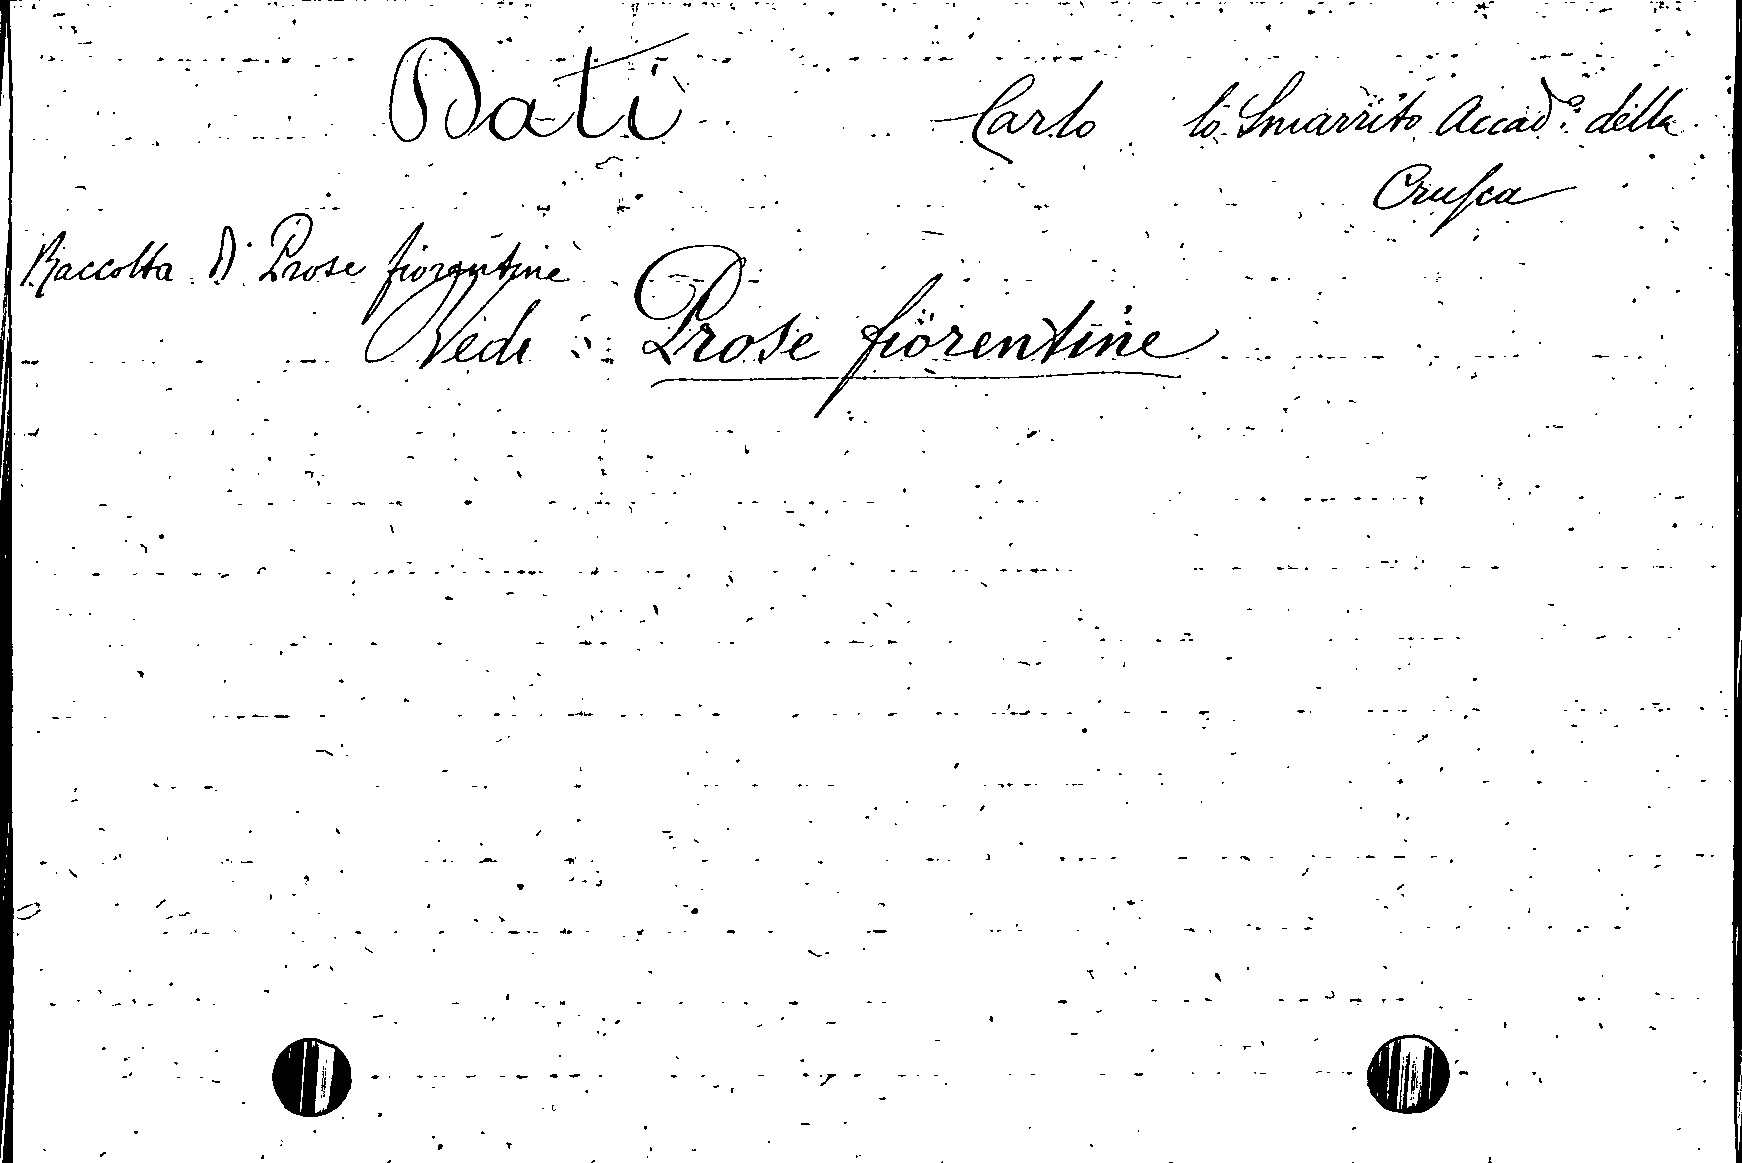 Dati Carlo lo Smarrito Accad.º della
Crusca
Raccolta di Prose fiorentine
Vedi : Prose fiorentine